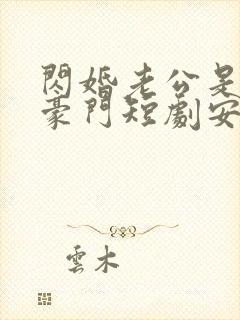 閃婚老公是
豪門短劇安
雲木